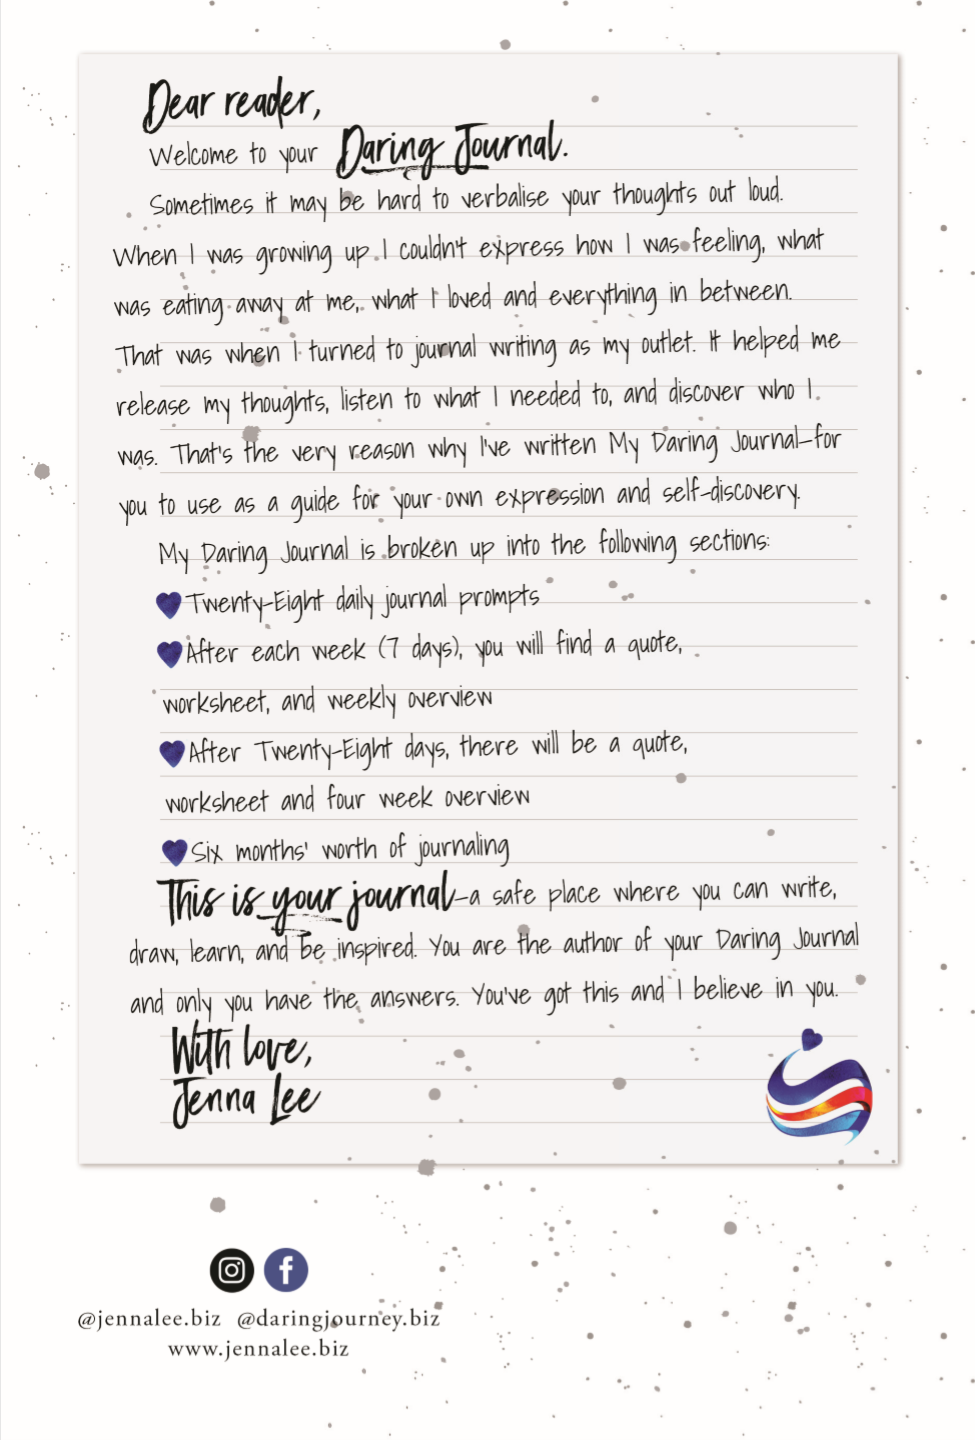 Dear reader,
Welcome to your Daring Journal.
Sometimes it may be hard to verbalise your thoughts out loud.
When I was growing up I couldn't express how I was feeling, what
was eating away at me, what I loved and everything in between.
That was when I turned to journal writing as my outlet. It helped me
release my thoughts, listen to what I needed to, and discover who I
was. That's the very reason why I've written My Daring Journal–for
you to use as a guide for your own expression and self-discovery.
My Daring Journal is broken up into the following sections:
Twenty-Eight daily journal prompts
After each week (7 days), you will find a quote,
worksheet, and weekly overview
After Twenty-Eight days, there will be a quote,
worksheet and four week overview
Six months' worth of journaling
This is your journal–a safe place where you can write,
draw, learn, and be inspired. You are the author of your Daring Journal
and only you have the answers. You've got this and I believe in you.
With love,
Jenna Lee
@jennalee.biz @daringjourney.biz
www.jennalee.biz